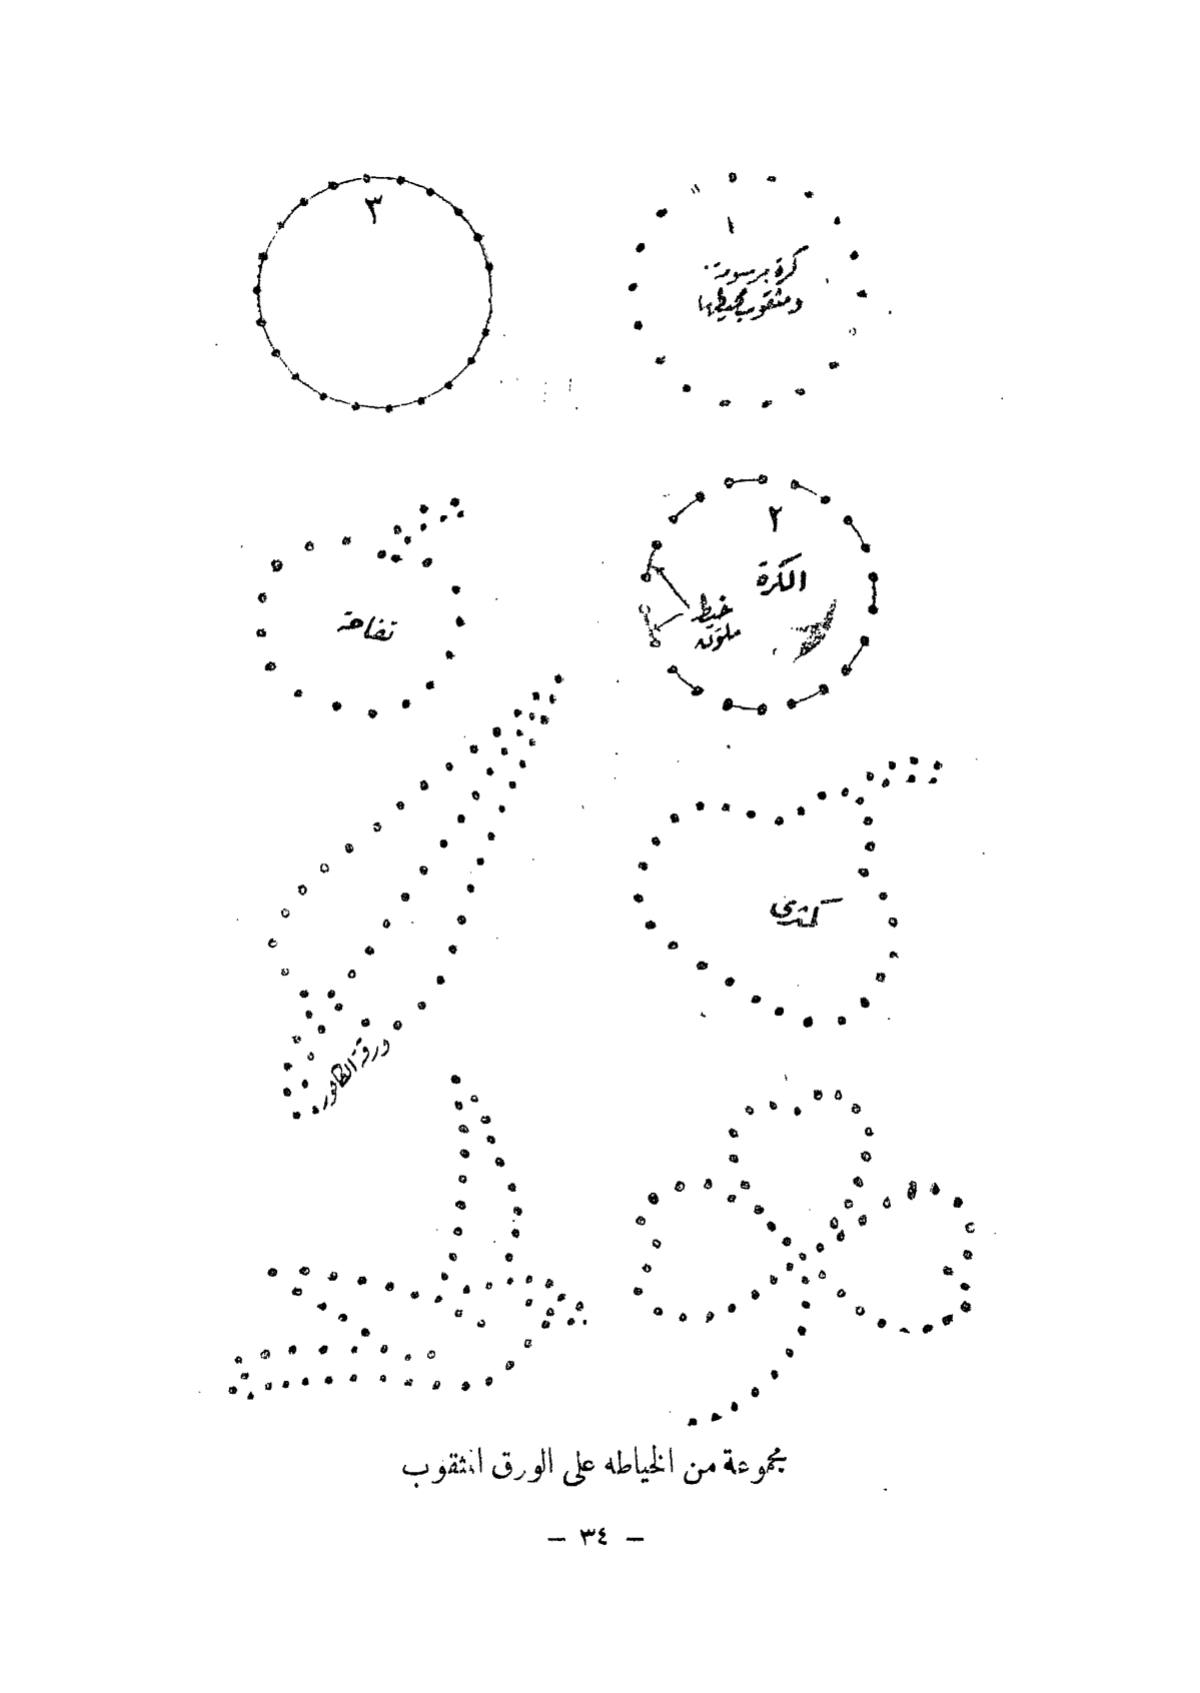 ١
كرة مرسومة
ومثقوب محيطها
٣
٢
الكرة
خيط
ملون
تفاحة
كمثرى
ورقة الكافور
مجموعة من الخياطه على الورق المثقوب
— ٣٤ —